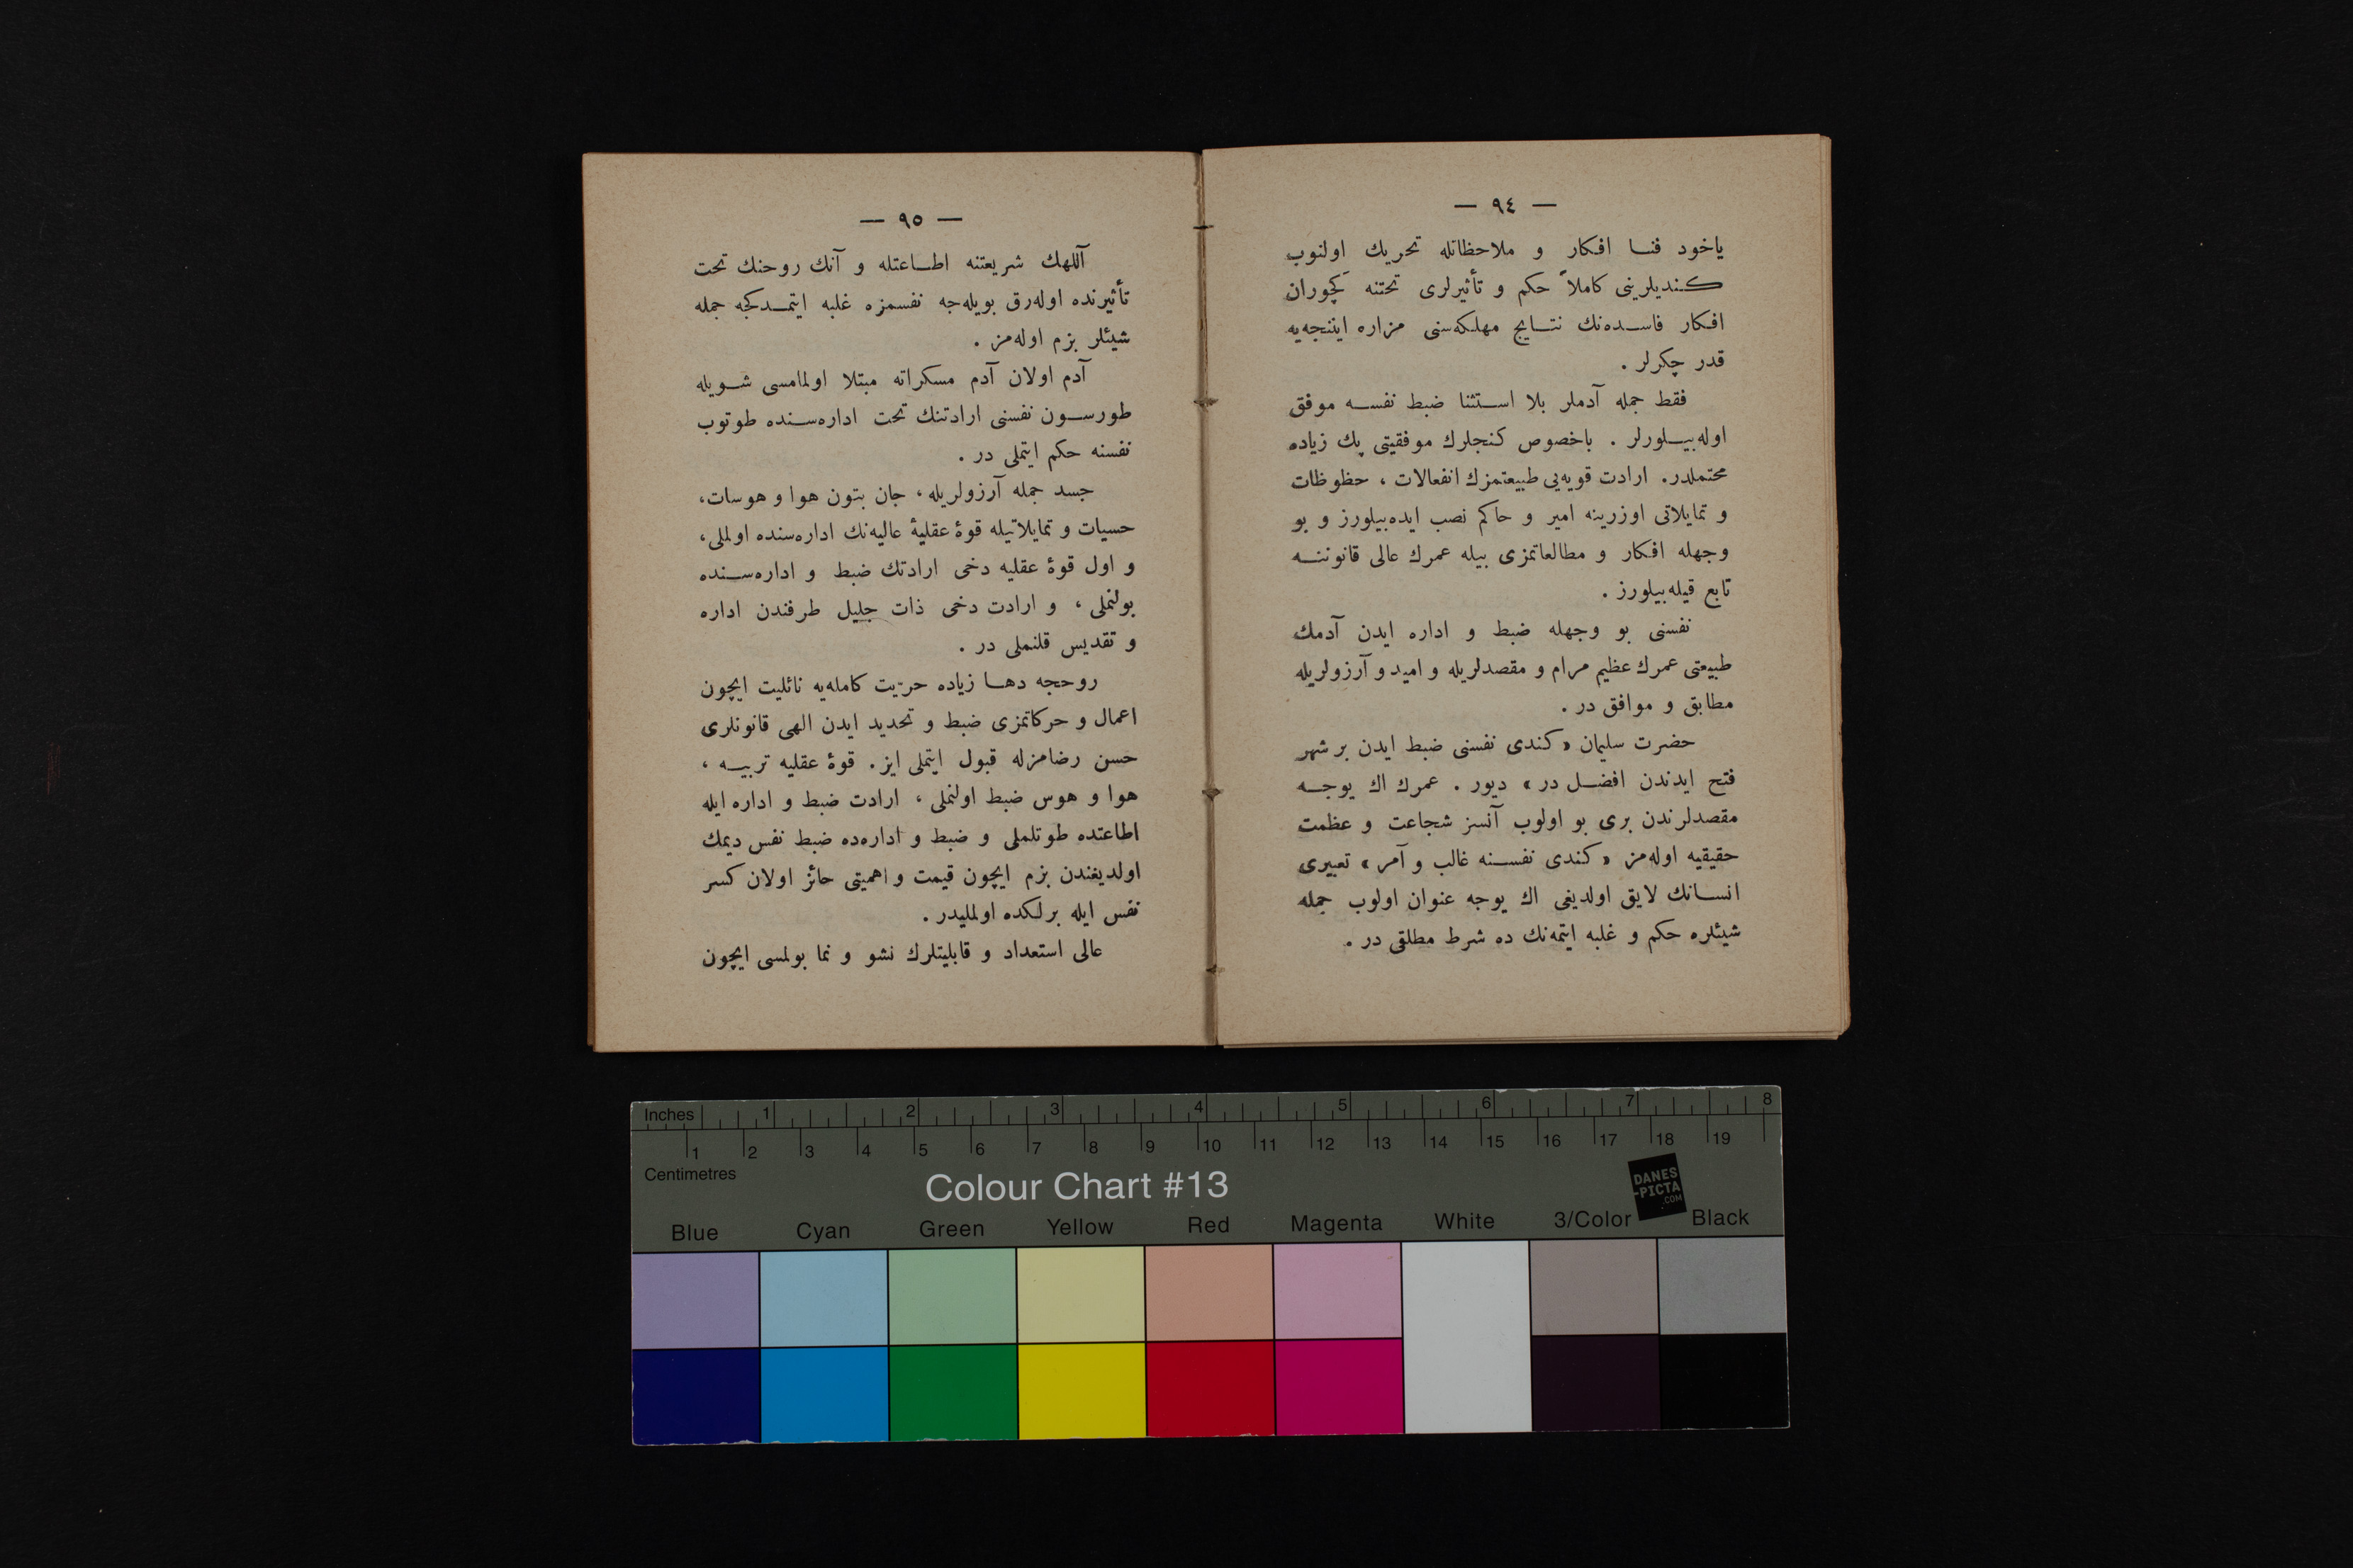 — ٩٤ —
ياخود فنـا افكار و ملاحظاتله تحريك اولنوب
كـنديلرينى كاملاً حكم و تأثيرلرى تحتنه كَچوران
افكار فاسـدەنك نتـايج مهلكەسنى مزاره ايننجەيه
قدر چكرلر .
فقط جمله آدملر بلا اسـتثنا ضبط نفسـه موفق
اولەبيـلورلر . باخصوص كنجلرك موفقيتى پك زياده
محتملدر. ارادت قويەيى طبيعتمزك انفعالات ، حظوظات
و تمايلاتى اوزرينه امير و حاكم نصب ايدەبيلورز و بو
وجهله افكار و مطالعاتمزى بيله عمرك عالى قانوننـه
تابع قيلەبيلورز .
نفسنى بو وجهله ضبط و اداره ايدن آدمك
طبيعتى عمرك عظيم مرام و مقصدلريله و اميد و آرزولريله
مطابق و موافق در .
حضرت سليمان « كندى نفسنى ضبط ايدن بر شهر
فتح ايدندن افضـل در » ديور . عمرك اك يوجـه
مقصدلرندن برى بو اولوب آنسز شجاعت و عظمت
حقيقيه اولەمز « كندى نفسـنه غالب و آمر » تعبيرى
انسـانك لايق اولديغى اك يوجه عنوان اولوب جمله
شيئلره حكم و غلبه ايتمەنك ده شرط مطلقى در .
— ٩٥ —
آللهك شريعتنه اطـاعتله و آنك روحنك تحت
تأثيرنده اولەرق بويلەجه نفسمزه غلبه ايتمـدكجه جمله
شيئلر بزم اولەمز .
آدم اولان آدم مسكراته مبتلا اولمامسى شـويله
طورسـون نفسنى ارادتنك تحت ادارەسـنده طوتوب
نفسنه حكم ايتملى در .
جسد جمله آرزولريله ، جان بتون هوا و هوسات،
حسيات و تمايلاتيله قوۀ عقليۀ عاليەنك ادارەسنده اولملى،
و اول قوۀ عقليه دخى ارادتك ضبط و ادارەسـنده
بولنملى ، و ارادت دخى ذات جليل طرفندن اداره
و تقديس قلنملى در .
روحجه دهـا زياده حرّيت كاملەيه نائليت ايچون
اعمال و حركاتمزى ضبط و تحديد ايدن الهى قانونلرى
حسن رضامزله قبول ايتملى ايز . قوۀ عقليه تربيـه ،
هوا و هوس ضبط اولنملى ، ارادت ضبط و اداره ايله
اطاعتده طوتلملى و ضبط و ادارەده ضبط نفس ديمك
اولديغندن بزم ايچون قيمت و اهميتى حائز اولان كسر
نفس ايله برلكده اولمليدر .
عالى استعداد و قابليتلرك نشو و نما بولمسى ايچون
Inches 1 2 3 4 5 6 7 8
1 2 3 4 5 6 7 8 9 10 11 12 13 14 15 16 17 18 19
Centimetres
Colour Chart #13
DANES
-PICTA
.COM
Blue Cyan Green Yellow Red Magenta White 3/Color Black